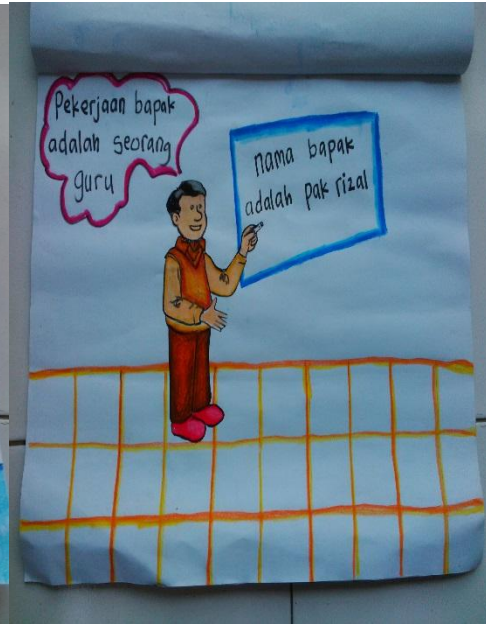 Pekerjaan bapak
adalah seorang
guru
nama bapak
adalah pak rizal